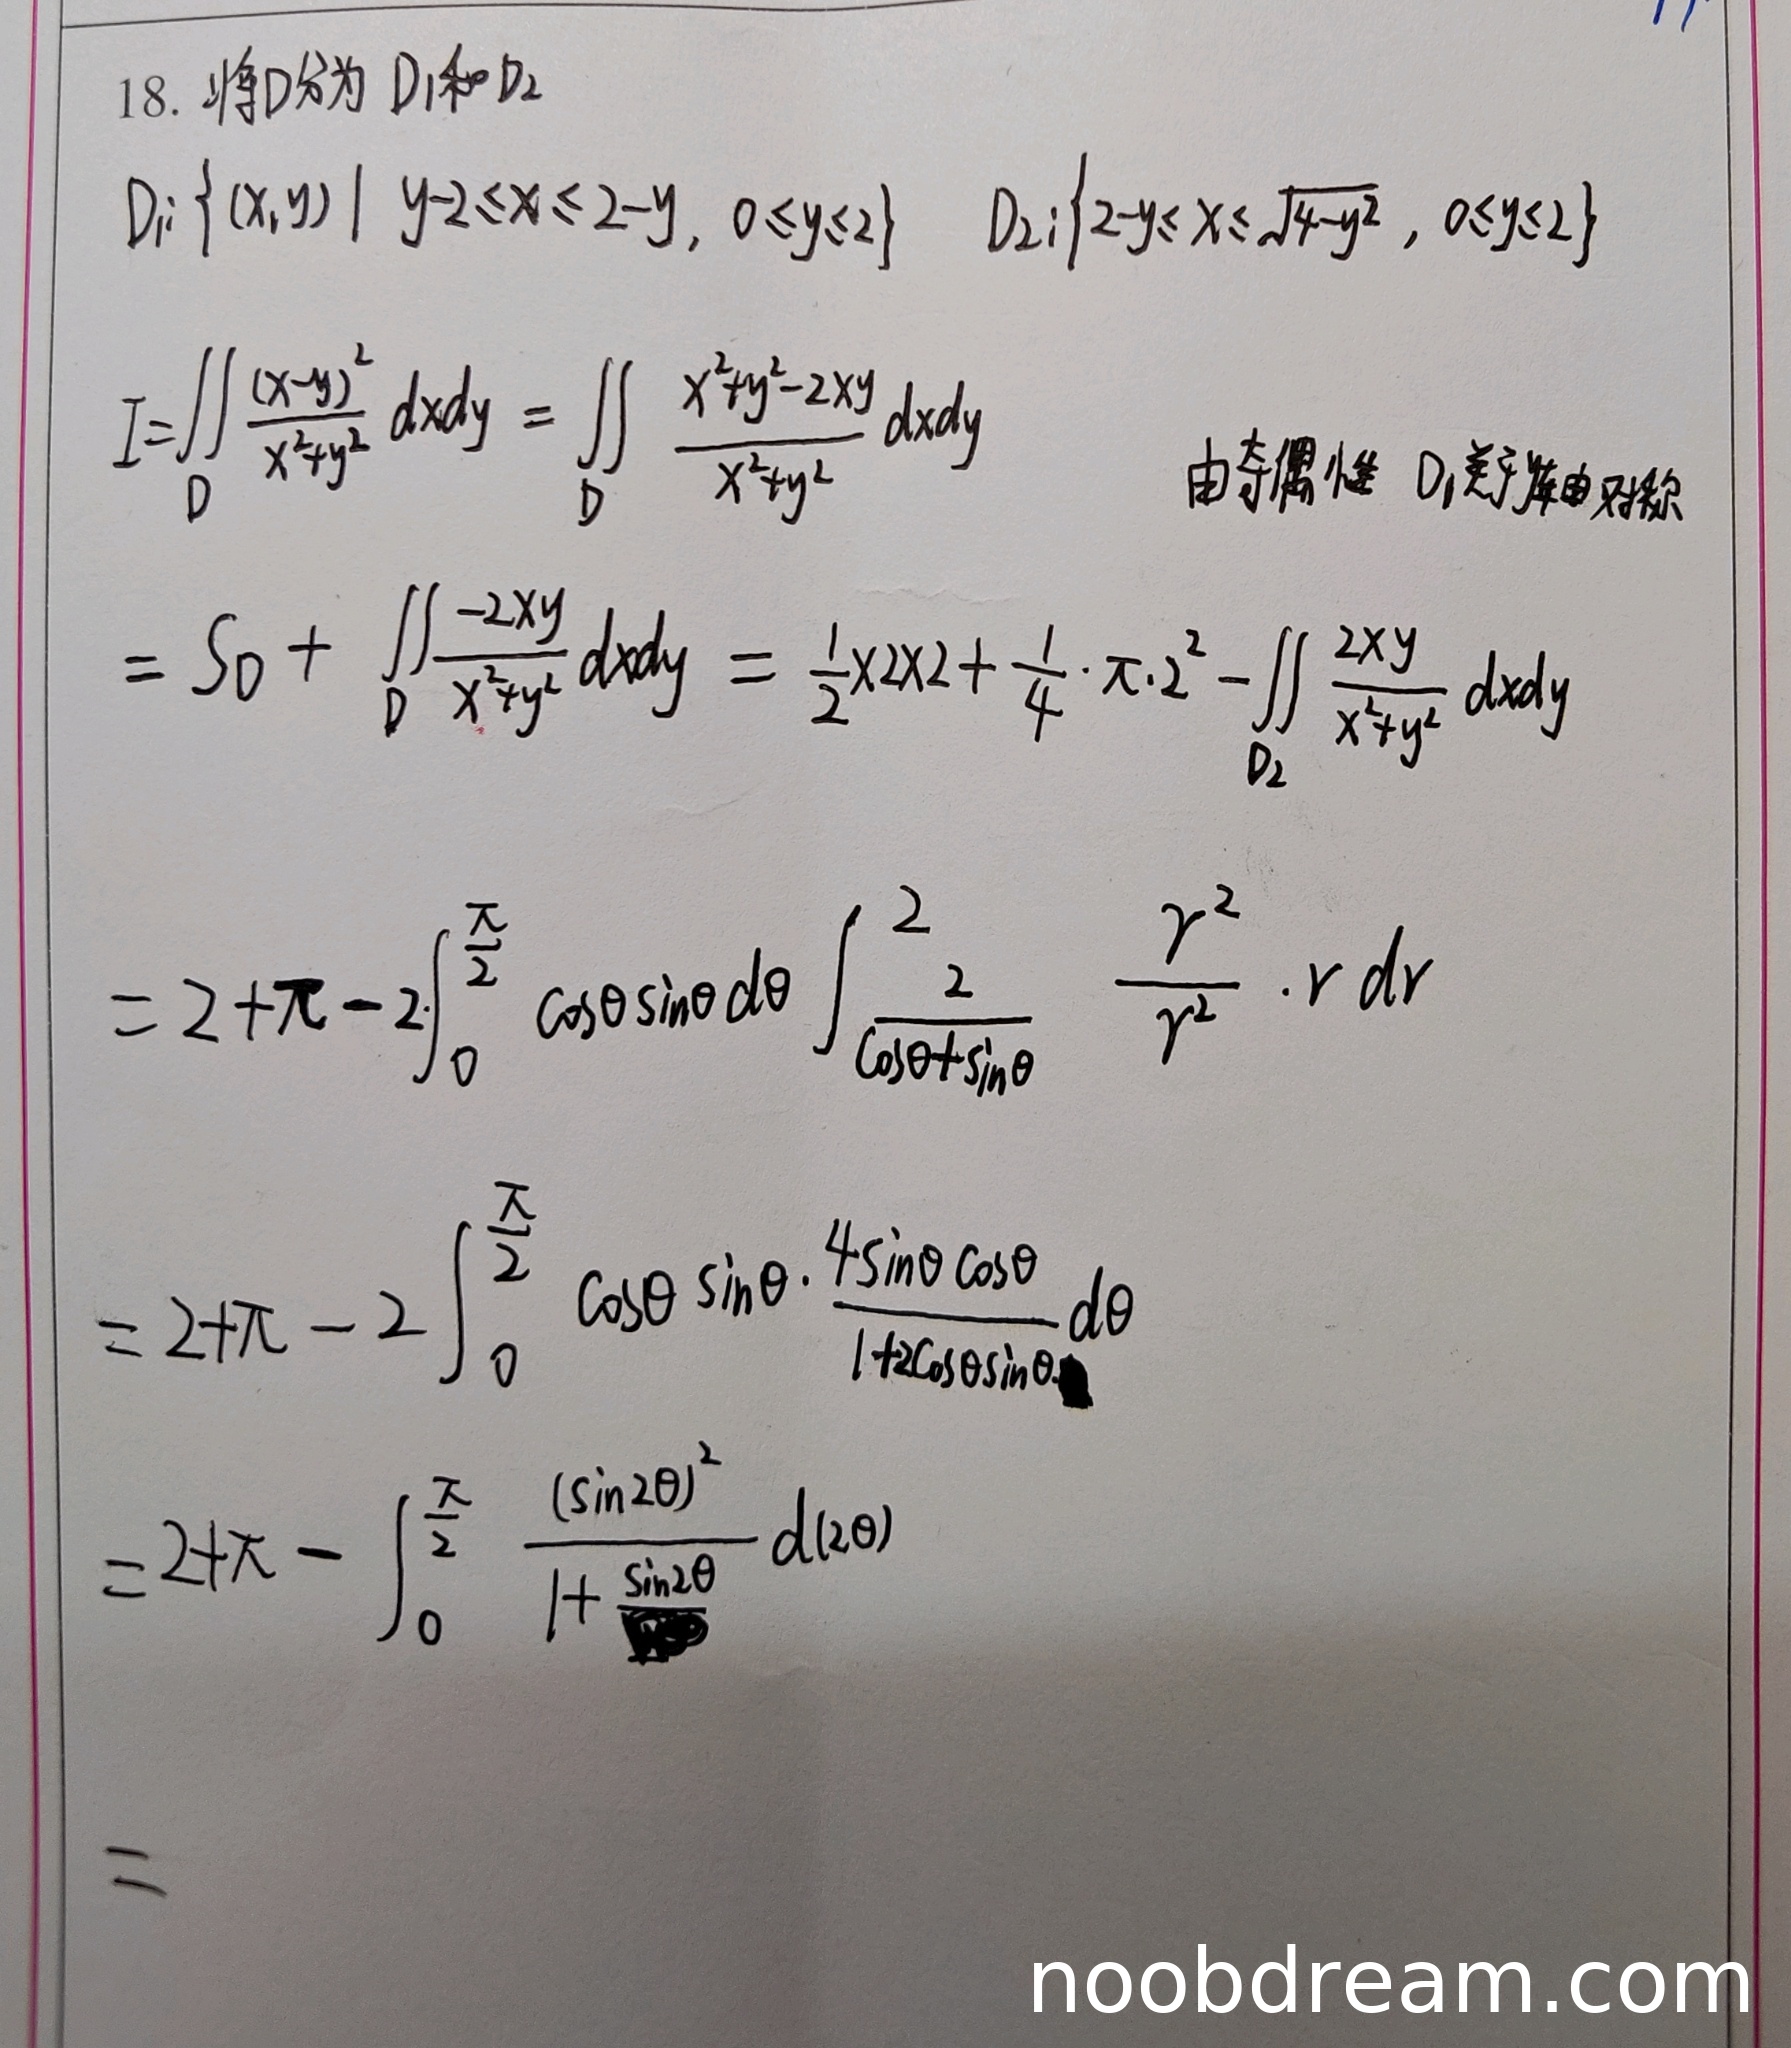 18. 将D分为 D₁和D₂
D₁: {(x,y) | y-2≤x≤2-y, 0≤y≤2} D₂: {2-y≤x≤√(4-y²), 0≤y≤2}
I=∬_D (x-y)²/(x²+y²) dxdy = ∬_D (x²+y²-2xy)/(x²+y²) dxdy
由奇偶性 D₁关于y轴由对称
= S_D + ∬_D (-2xy)/(x²+y²) dxdy = 1/2×2×2+1/4·π·2² - ∬_D₂ 2xy/(x²+y²) dxdy
= 2+π-2·∫_0^(π/2) cosθsinθdθ ∫_(2/(cosθ+sinθ))^2 r²/r² ·r dr
= 2+π-2∫_0^(π/2) cosθ sinθ· 4sinθcosθ/(1+2cosθsinθ) dθ
= 2+π-∫_0^(π/2) (sin2θ)²/(1+sin2θ) d(2θ)
=
noobdream.com